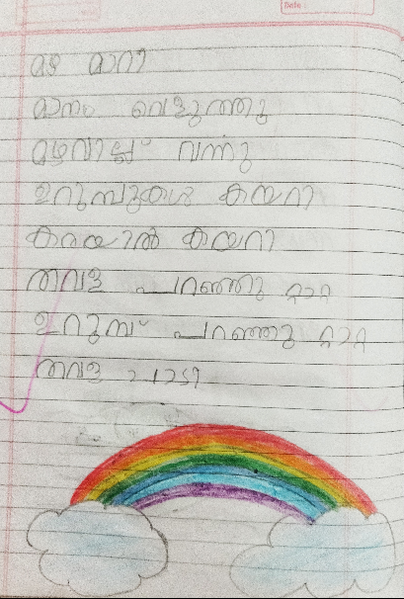 Date
മഴ മാറി
മാനം വെളുത്തു
മഴവില്ല് വന്നു
ഉറുമ്പുകൾ കയറി
കരയിൽ കയറി
തവള പറഞ്ഞു റ്റാറ്റ
ഉറുമ്പ് പറഞ്ഞു റ്റാറ്റ
തവള ചാടി